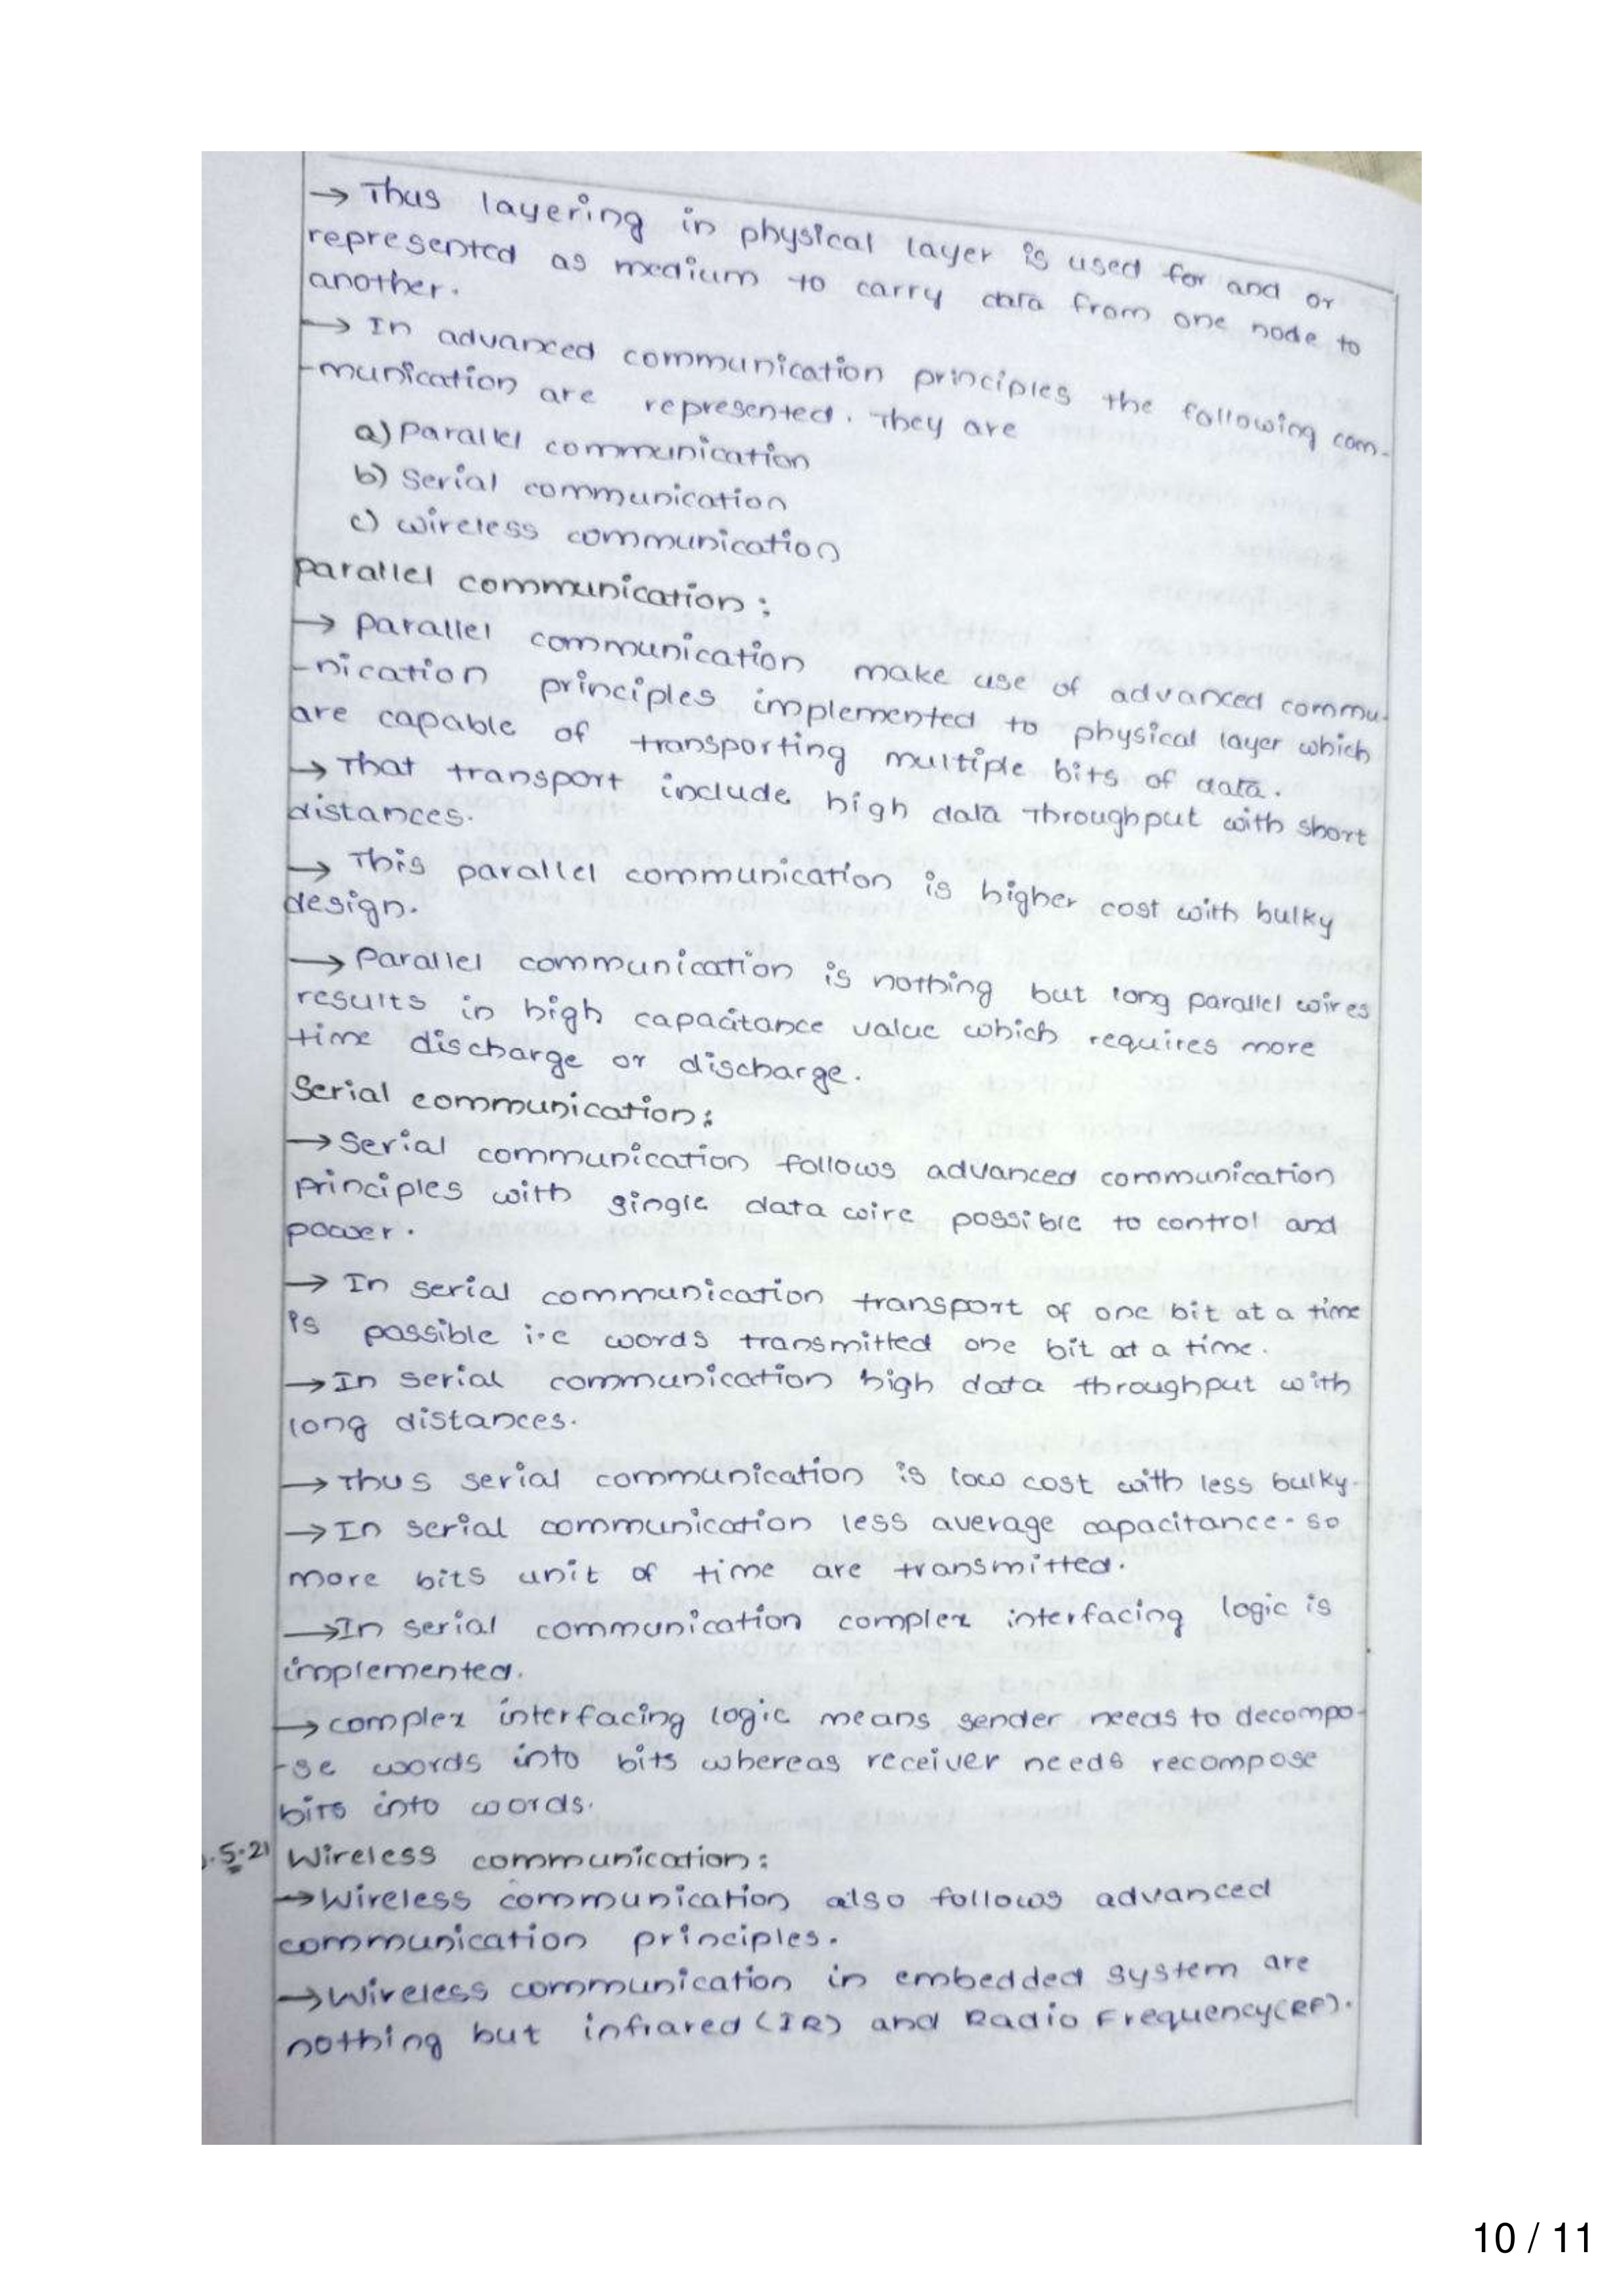 → Thus layering in physical layer is used for and or
represented as medium to carry data from one node to
another.
→ In advanced communication principles the following com-
-munication are represented. They are
a) Parallel communication
b) Serial communication
c) wireless communication
parallel communication :
→ parallel communication make use of advanced commu-
-nication principles implemented to physical layer which
are capable of transporting multiple bits of data.
→ That transport include high data throughput with short
distances.
→ This parallel communication is higher cost with bulky
design.
→ Parallel communication is nothing but long parallel wires
results in high capacitance value which requires more
time discharge or discharge.
Serial communication:
→ Serial communication follows advanced communication
principles with single data wire possible to control and
power.
→ In serial communication transport of one bit at a time
is possible i.e words transmitted one bit at a time.
→ In serial communication high data throughput with
long distances.
→ Thus serial communication is low cost with less bulky.
→ In serial communication less average capacitance. so
more bits unit of time are transmitted.
→ In serial communication complex interfacing logic is
implemented.
→ complex interfacing logic means sender needs to decompo-
-se words into bits whereas receiver needs recompose
bits into words.
.5.21 Wireless communication:
→ Wireless communication also follows advanced
communication principles.
→ Wireless communication in embedded system are
nothing but infrared (IR) and Radio Frequency(RF).
10 / 11